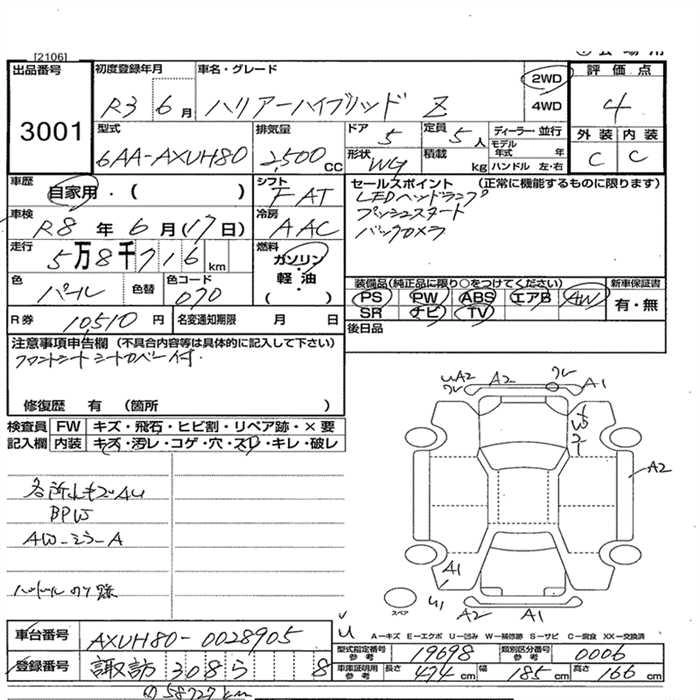 [2106]
出品番号
3001
初度登録年月
R3 6月
車名・グレード
ハリアーハイブリッド Z
2WD
4WD
評価点
4
外装 内装
C C
型式
6AA-AXUH80
排気量
2,500 CC
ドア
5
定員
5人
形状
WG
積載
kg
ディーラー・並行
モデル年式 年
ハンドル 左・右
車歴
自家用・( )
シフト
FAT
車検
R8年 6月(17日)
冷房
AAC
走行
5万8千716km
燃料
ガソリン・
軽・油
( )
色
パール
色替
色コード
070
R券
10,510円
名変通知期限 月 日
セールスポイント (正常に機能するものに限ります)
LEDヘッドランプ
プッシュスタート
バックカメラ
装備品(純正品に限り○をつけてください)
PS PW ABS エアB AW
SR ナビ TV
新車保証書
有・無
後日品
注意事項申告欄 (不具合内容等は具体的に記入して下さい)
フロントシート シートカバー付.
修復歴 有 (箇所 )
検査員 FW キズ・飛石・ヒビ割・リペア跡・×要
記入欄 内装 キズ・汚レ・コゲ・穴・スリ・キレ・破レ
BPW
AW-ミラ-A
UA2
A2
A1
A2
A1
A2
A1
スペア
A-キズ E-エクボ U-凹み W-補修跡 S-サビ C-腐食 XX-交換済
車台番号
AXUH80-0028905
登録番号
諏訪 308 ら 8
型式指定番号 参考
19698
類別区分番号 参考
0006
車庫証明用 参考
長さ 474cm 幅 185cm 高さ 166cm
58727km